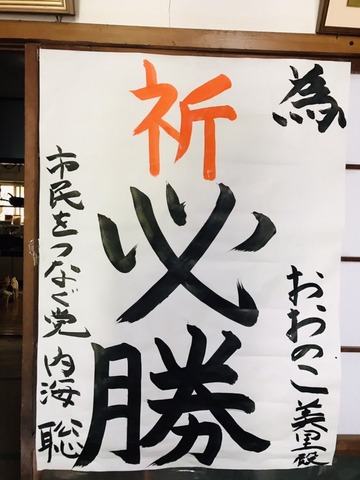 為
おおのこ美里殿
祈
必勝
市民をつなぐ党 内海 聡